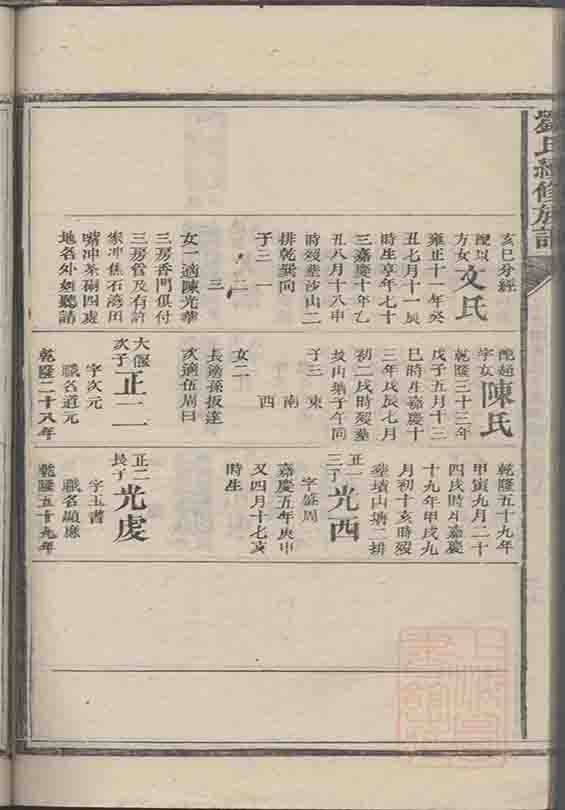 劉氏續修族譜
亥巳分經
配以文氏
方女
雍正十一年癸
丑七月十一辰
時生享年七十
三嘉慶十年乙
丑八月十八申
時歿塟沙山二
排乾巽向
子三 一
二
三
女一適陳光華
三房香門俱付
三房管及有許
家冲焦石湾田
嘴冲茶硐四處
地名外刻聽請
配超陳氏
字女
乾隆三十三年
戊子五月十三
巳時生嘉慶十
三年戊辰七月
初二戌時歿塟
坟山塘子午向
子三 東
南
西
女二
長適孫扳逵
次適伍周日
大偃正二
次子
字次元
職名道元
乾隆二十八年
乾隆五十九年
甲寅九月二十
四戌時生嘉慶
十九年甲戌九
月初十亥時歿
塟墳山塘二排
正一光西
三子
字盛周
嘉慶五年庚申
又四月十七亥
時生
正二光虔
長子
字玉書
職名顯應
乾隆五十九年